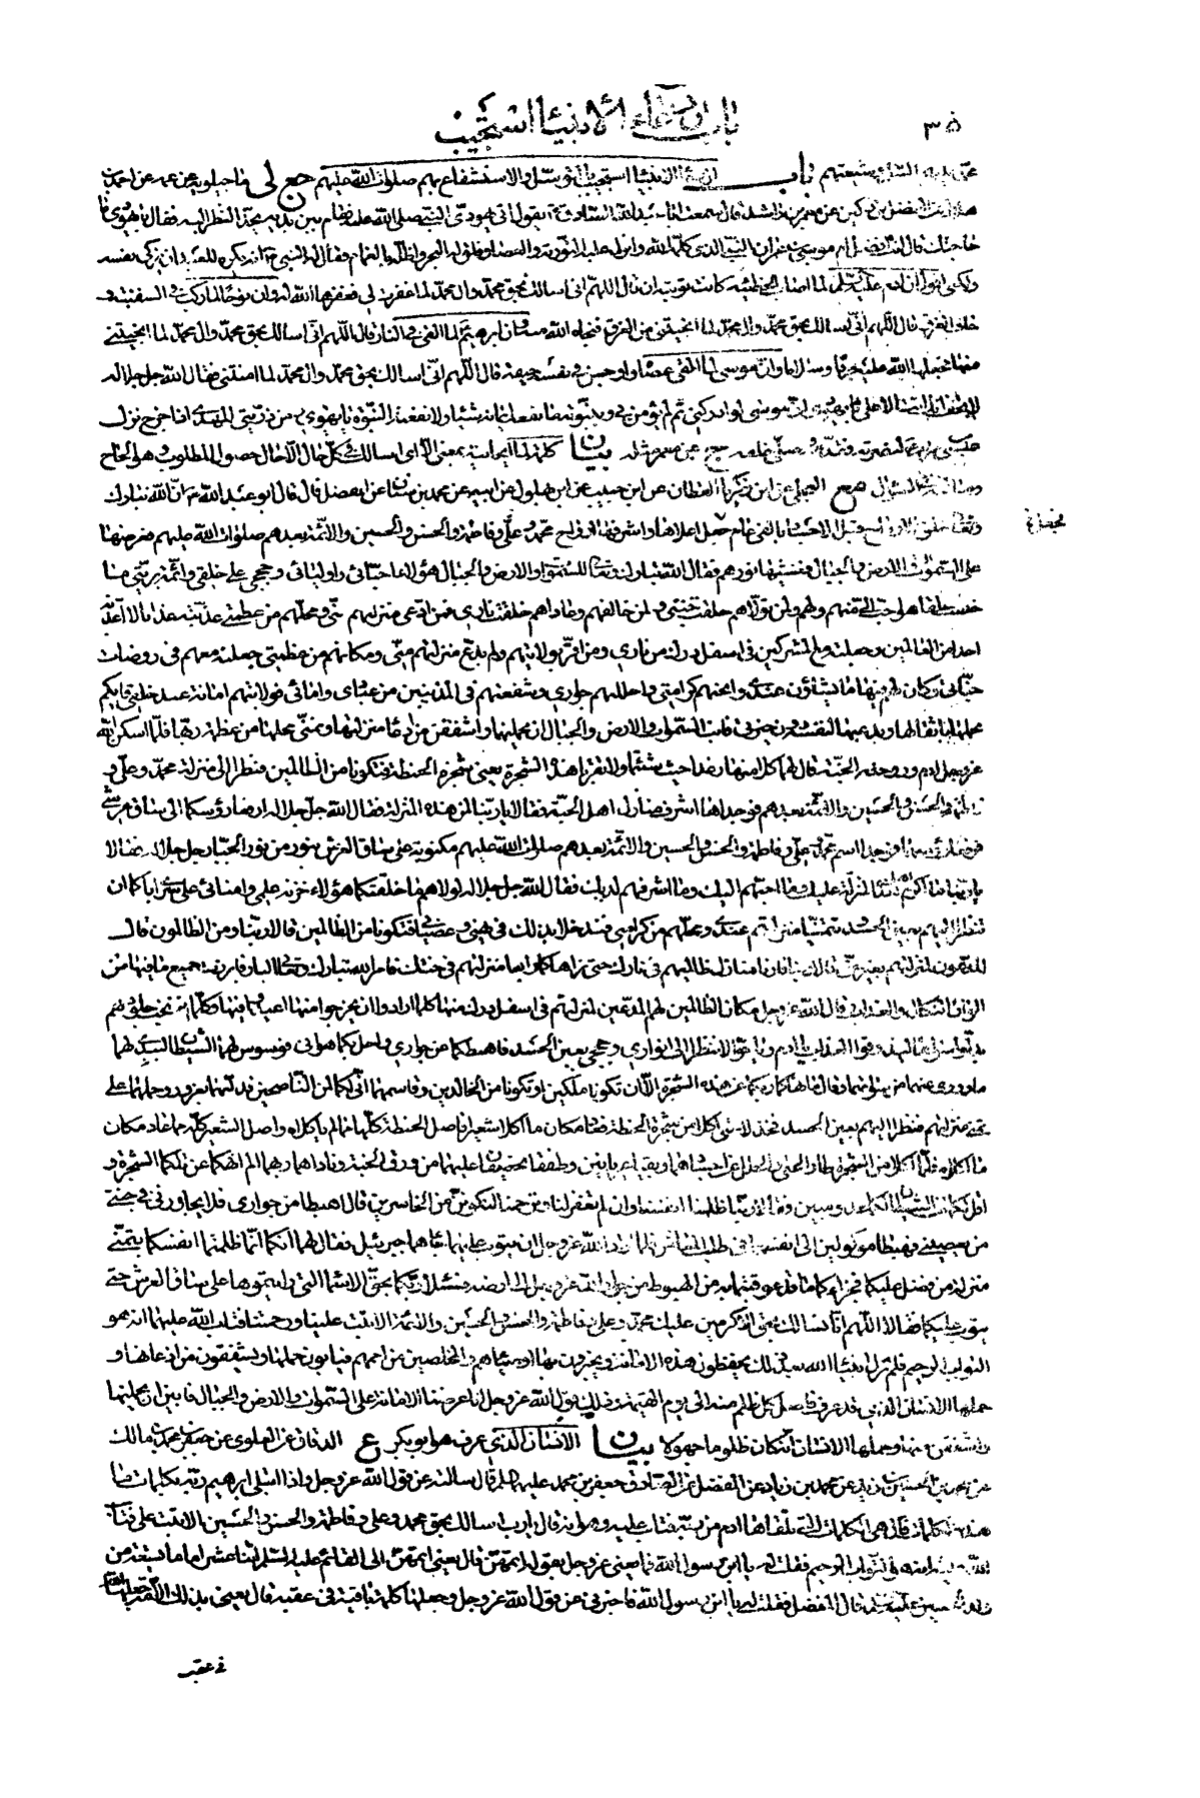 باب ان دعاء الانبیاء استجیب
۳۵
باب ان دعاء الانبیاء استجیب بالتوسل والاستشفاع بهم صلوات الله علیهم جع لی ماجیلویه عن عمه عن احمد بن
عن معمر بن راشد قال سمعت ابا عبد الله الصادق ع یقول اتی یهودی النبی صلی الله علیه فقام بین یدیه یحد النظر الیه فقال یا یهودی ما
حاجتک قال انت افضل ام موسی بن عمران النبی الذی کلمه الله وانزل علیه التوریة والعصا وفلق له البحر واظله بالغمام فقال له النبی ص انه یکره للعبد ان یزکی نفسه
ولکنی اقول ان ادم لما اصاب الخطیئة کانت توبته ان قال اللهم انی اسالک بحق محمد وال محمد لما غفرت لی فغفرها الله له وان نوحا لما رکب فی السفینة و
خاف الغرق قال اللهم انی اسالک بحق محمد وال محمد لما انجیتنی من الغرق فنجاه الله عنه وان ابرهیم لما القی فی النار قال اللهم انی اسالک بحق محمد وال محمد لما انجیتنی
منها فجعلها الله علیه بردا وسلاما وان موسی لما القی عصاه واوجس فی نفسه خیفة قال اللهم انی اسالک بحق محمد وال محمد لما امنتنی فقال الله جل جلاله
لا تخف انک انت الاعلی یا یهودی ان موسی لو ادرکنی ثم لم یؤمن بی وبنبوتی ما نفعه ایمانه شیئا ولا نفعته النبوة یا یهودی ومن ذریتی المهدی اذا خرج نزل
عیسی بن مریم لنصرته فقدمه وصلی خلفه بیان کلمة لما ایجابیة بمعنی الا ای اسالک فی کل حال الا حال حصول المطلوب وهو الحاح
مع العجلی عن ابن زکریا القطان عن ابن حبیب عن ابن بهلول عن ابیه عن محمد بن سنان عن المفضل قال قال ابو عبد الله ع ان الله تبارک
وتعالی خلق الارواح قبل الاجساد بالفی عام فجعل اعلاها واشرفها ارواح محمد وعلی وفاطمة والحسن والحسین والائمة بعدهم صلوات الله علیهم فعرضها
علی السموات والارض والجبال فغشیها نورهم فقال الله تبارک وتعالی للسموات والارض والجبال هؤلاء احبائی واولیائی وحججی علی خلقی وائمة بریتی ما
خلقت خلقا هو احب الی منهم ولهم ولمن تولاهم خلقت جنتی ولمن خالفهم وعاداهم خلقت ناری فمن ادعی منزلتهم منی ومحلهم من عظمتی عذبته عذابا لا اعذبه
احدا من العالمین وجعلته مع المشرکین فی اسفل درک من ناری ومن اقر بولایتهم ولم یدع منزلتهم منی ومکانهم من عظمتی جعلته معهم فی روضات
جناتی وکان لهم فیها ما یشاؤن عندی وابحتهم کرامتی واحللتهم جواری وشفعتهم فی المذنبین من عبادی وامائی فولایتهم امانة عند خلقی فایکم
یحملها باثقالها ویدعیها لنفسه دون خیرتی فابت السموات والارض والجبال ان یحملنها واشفقن من ادعاء منزلتها وتمنی محلها من عظمة ربها فلما اسکن الله
عز وجل ادم وزوجته الجنة قال لهما کلا منها رغدا حیث شئتما ولا تقربا هذه الشجرة یعنی شجرة الحنطة فتکونا من الظالمین فنظرا الی منزلة محمد وعلی و
فاطمة والحسن والحسین والائمة بعدهم فوجداها اشرف منازل اهل الجنة فقالا یا ربنا لمن هذه المنزلة فقال الله جل جلاله ارفعا رؤسکما الی ساق عرشی
فرفعا رؤسهما فوجدا اسم محمد وعلی وفاطمة والحسن والحسین والائمة بعدهم صلوات الله علیهم مکتوبة علی ساق العرش بنور من نور الجبار جل جلاله فقالا
یا ربنا ما اکرم اهل هذه المنزلة علیک وما احبهم الیک وما اشرفهم لدیک فقال الله جل جلاله لولاهم ما خلقتکما هؤلاء خزنة علمی وامنائی علی سری ایاکما ان
تنظرا الیهم بعین الحسد وتتمنیا منزلتهم عندی ومحلهم من کرامتی فتدخلا بذلک فی نهیی وعصیانی فتکونا من الظالمین قالا ربنا ومن الظالمون قال
المدعون لمنزلتهم بغیر حق قالا ربنا فارنا منازل ظالمیهم فی نارک حتی نراها کما راینا منزلتهم فی جنتک فامر الله تبارک وتعالی النار فابرزت جمیع ما فیها من
الوان النکال والعذاب وقال الله عز وجل مکان الظالمین لهم المدعین لمنزلتهم فی اسفل درک منها کلما ارادوا ان یخرجوا منها اعیدوا فیها وکلما نضجت جلودهم
بدلوا سواها لیذوقوا العذاب یا ادم ویا حوا لا تنظرا الی انواری وحججی بعین الحسد فاهبطکما عن جواری واحل بکما هوانی فوسوس لهما الشیطان لیبدی لهما
ما ووری عنهما من سواتهما وقال ما نهاکما ربکما عن هذه الشجرة الا ان تکونا ملکین او تکونا من الخالدین وقاسمهما انی لکما لمن الناصحین فدلیهما بغرور وحملهما علی
تمنی منزلتهم فنظرا الیهم بعین الحسد فخذلا حتی اکلا من شجرة الحنطة فعاد مکان ما اکلا شعیرا فاصل الحنطة کلها مما لم یاکلاه واصل الشعیر کله مما عاد مکان
ما اکلاه فلما اکلا من الشجرة طار الحلی والحلل عن اجسادهما وبقیا عریانین وطفقا یخصفان علیهما من ورق الجنة وناداهما ربهما الم انهکما عن تلکما الشجرة و
اقل لکما ان الشیطان لکما عدو مبین وقالا ربنا ظلمنا انفسنا وان لم تغفر لنا وترحمنا لنکونن من الخاسرین قال اهبطا من جواری فلا یجاورنی فی جنتی
من یعصینی فهبطا موکولین الی انفسهما فی طلب المعاش فلما اراد الله عز وجل ان یتوب علیهما جاءهما جبرئیل فقال لهما انکما انما ظلمتما انفسکما بتمنی
منزلة من فضل علیکما فجزاؤکما ما قد عوقبتما به من الهبوط من جوار الله عز وجل الی ارضه فسئلا ربکما بحق الاسماء التی رایتموها علی ساق العرش حتی
یتوب علیکما فقالا اللهم انا نسالک بحق الاکرمین علیک محمد وعلی وفاطمة والحسن والحسین والائمة الا تبت علینا ورحمتنا فتاب الله علیهما انه هو
التواب الرحیم فلم تزل انبیاء الله بعد ذلک یحفظون هذه الامانة ویخبرون بها اوصیاءهم والمخلصین من اممهم فیابون حملها ویشفقون من ادعائها و
حملها الانسان الذی قد عرف فاصل کل ظلم منه الی یوم القیمة وذلک قول الله عز وجل انا عرضنا الامانة علی السموات والارض والجبال فابین ان یحملنها
واشفقن منها وحملها الانسان انه کان ظلوما جهولا بیان الانسان الذی عرف هو ابو بکر ع الدقاق عن العلوی عن جعفر بن محمد بن مالک
عن محمد بن الحسین بن زید عن محمد بن زیاد عن المفضل عن الصادق جعفر بن محمد علیه السلم قال سالته عن قول الله عز وجل واذ ابتلی ابرهیم ربه بکلمات ما
هذه الکلمات قال هی الکلمات التی تلقاها ادم من ربه فتاب علیه وهو انه قال یا رب اسالک بحق محمد وعلی وفاطمة والحسن والحسین الا تبت علی فتاب
الله علیه انه هو التواب الرحیم فقلت له یا ابن رسول الله فما یعنی عز وجل بقوله اتمهن قال یعنی اتمهن الی القائم علیه السلم اثنا عشر اماما تسعة من
ولد الحسین علیه السلم قال المفضل فقلت له یا ابن رسول الله فاخبرنی عن قول الله عز وجل وجعلها کلمة باقیة فی عقبه قال یعنی بذلک الامامة جعلها الله
فی عقب